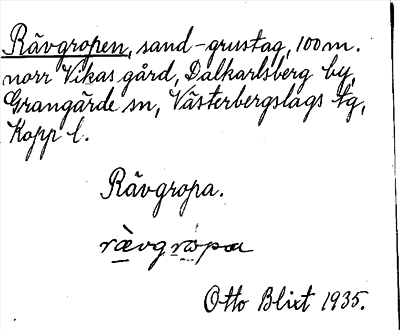 Rävgropen, sand-grustag, 100 m.
norr Vikas gård, Dalkarlsberg by,
Grangärde sn, Västerbergslags tg,
Kopp l.
Rävgropa.
rævgropa
Otto Blixt 1935.